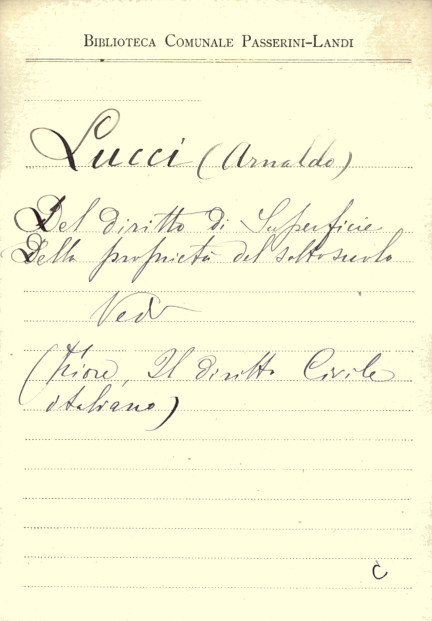 BIBLIOTECA COMUNALE PASSERINI-LANDI
Lucci (Arnaldo)
Del diritto di Superficie
Della proprietà del sottosuolo
Vedi
(Fiore, Il diritto Civile
italiano)
C